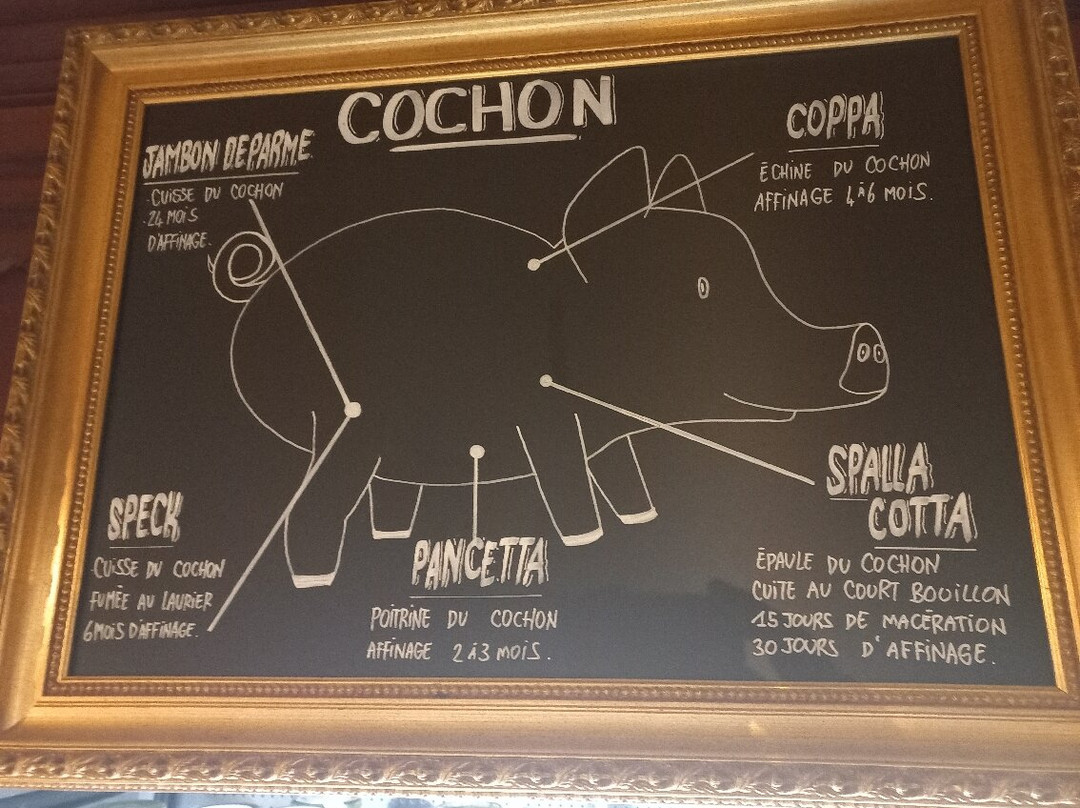 COCHON
JAMBON DE PARME
- CUISSE DU COCHON
- 24 MOIS
D'AFFINAGE.
COPPA
ÉCHINE DU COCHON
AFFINAGE 4 à 6 MOIS.
SPECK
CUISSE DU COCHON
FUMÉE AU LAURIER
6 MOIS D'AFFINAGE.
PANCETTA
POITRINE DU COCHON
AFFINAGE 2 à 3 MOIS.
SPALLA
COTTA
ÉPAULE DU COCHON
CUITE AU COURT BOUILLON
15 JOURS DE MACÉRATION
30 JOURS D'AFFINAGE.